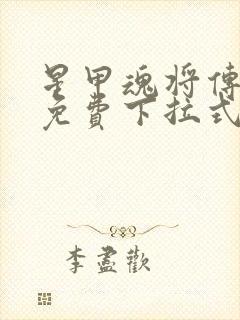 星甲魂将傳
免費下拉式
李盡歡